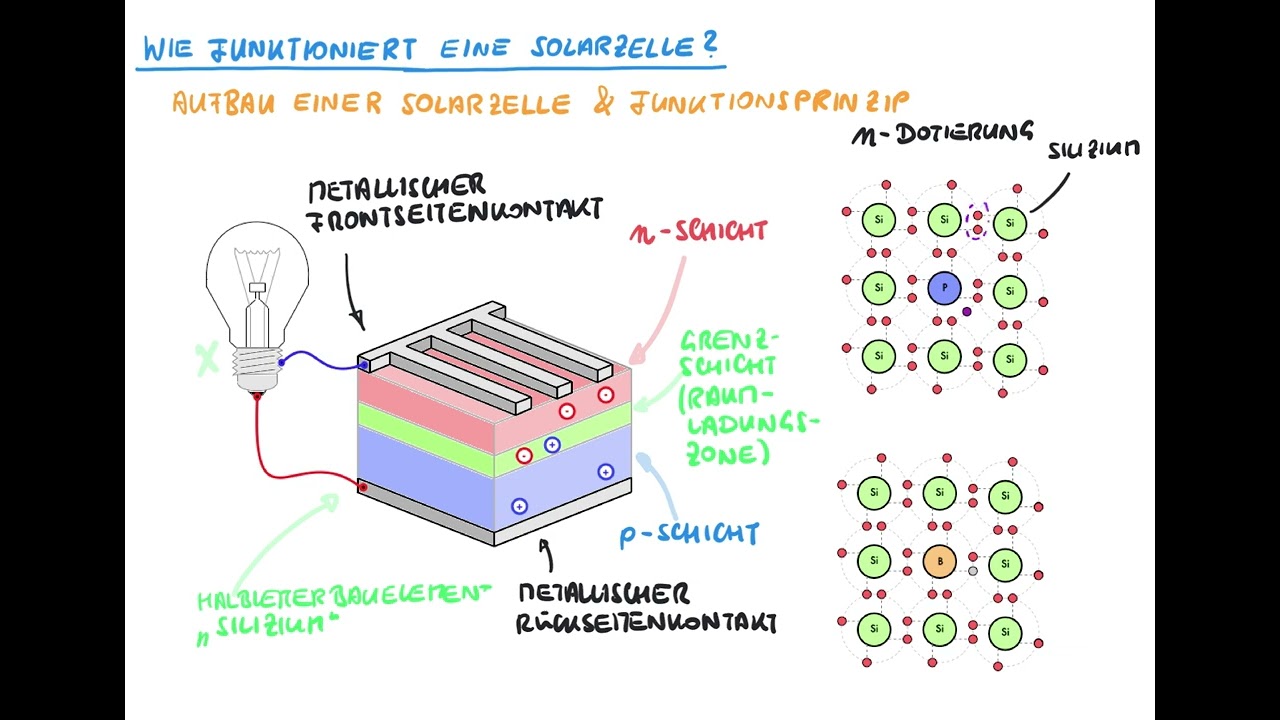 WIE FUNKTIONIERT EINE SOLARZELLE?
AUFBAU EINER SOLARZELLE & FUNKTIONSPRINZIP
n-DOTIERUNG
SILIZIUM
METALLISCHER
FRONTSEITENKONTAKT
n-SCHICHT
GRENZ-
SCHICHT
(RAUM-
LADUNGS-
ZONE)
p-SCHICHT
METALLISCHER
RÜCKSEITENKONTAKT
HALBLEITERBAUELEMENT
"SILIZIUM"
X
- -
- +
+
+
Si Si Si
Si P Si
Si Si Si
Si Si Si
Si B Si
Si Si Si